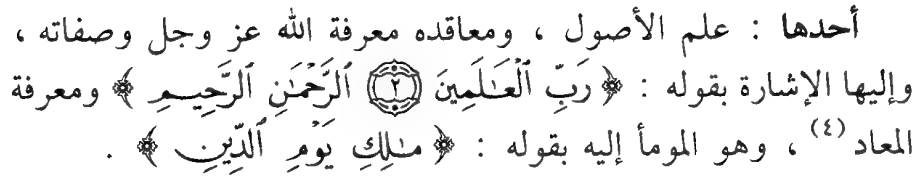 أحدها : علم الأصول ، ومعاقده معرفة الله عز وجل وصفاته ،
وإليها الإشارة بقوله : ﴿ رَبِّ ٱلْعَـٰلَمِينَ ۝٢ ٱلرَّحْمَـٰنِ ٱلرَّحِيمِ ﴾ ومعرفة
المعاد (٤) ، وهو المومأ إليه بقوله : ﴿ مَـٰلِكِ يَوْمِ ٱلدِّينِ ﴾ .